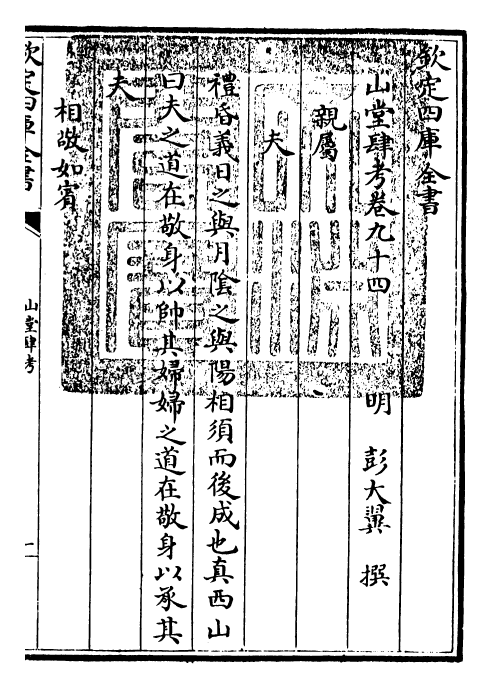 欽定四庫全書
山堂肆考卷九十四 明 彭大翼 撰
親屬
夫
禮昏義日之與月陰之與陽相須而後成也真西山
曰夫之道在敬身以帥其婦婦之道在敬身以承其
夫
相敬如賓
欽定四庫全書
山堂肆考